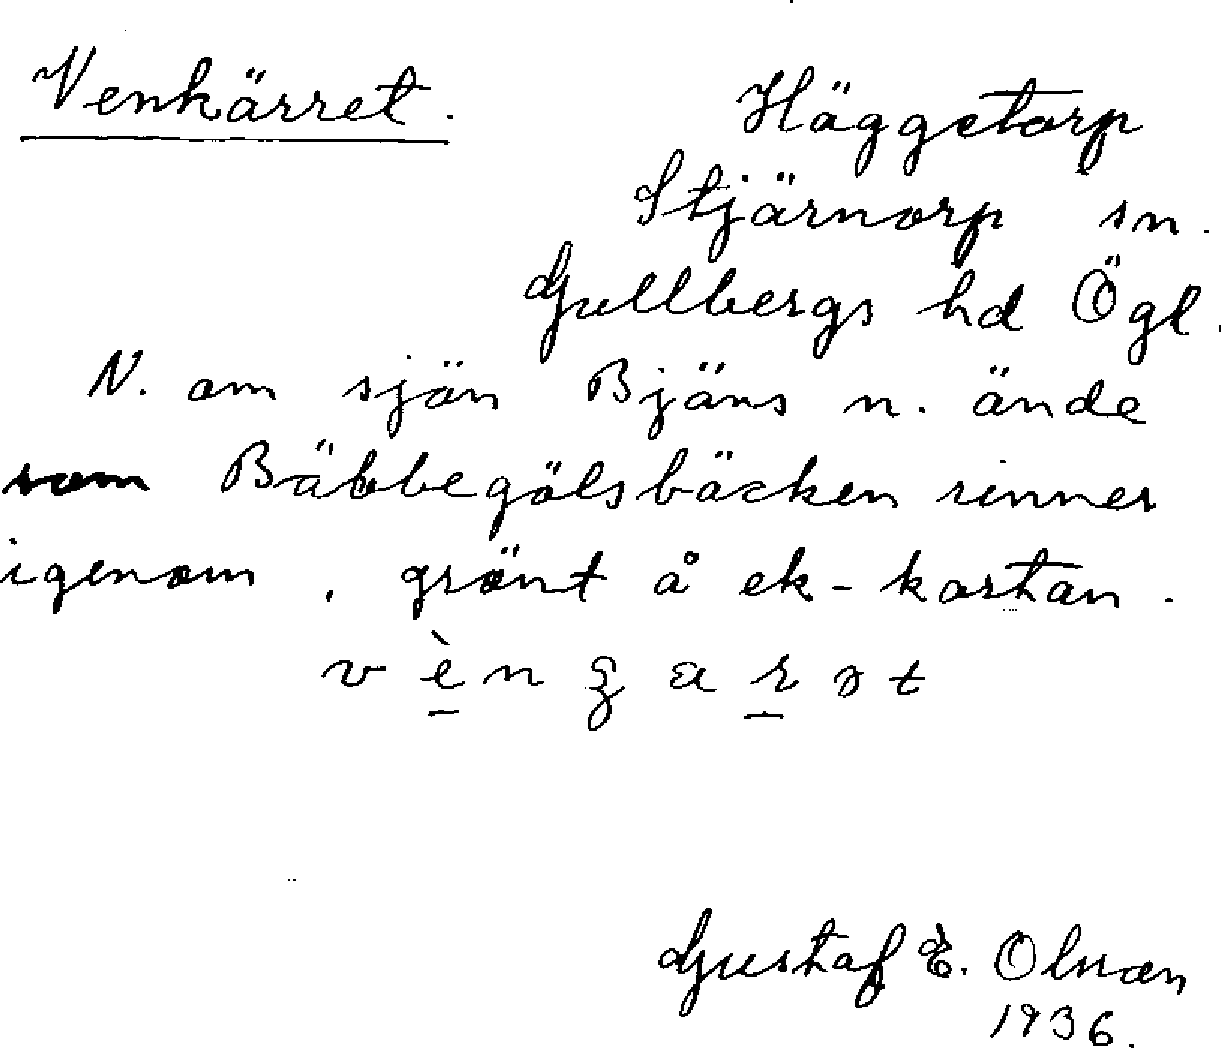 Venkärret.
Häggetorp
Stjärnorp sn.
Gullbergs hd Ögl.
N. om sjön Bjäns n. ände
som Bäbbegölsbäcken rinner
igenom, grönt å ek-kartan.
Gustaf E. Olsson
1936.